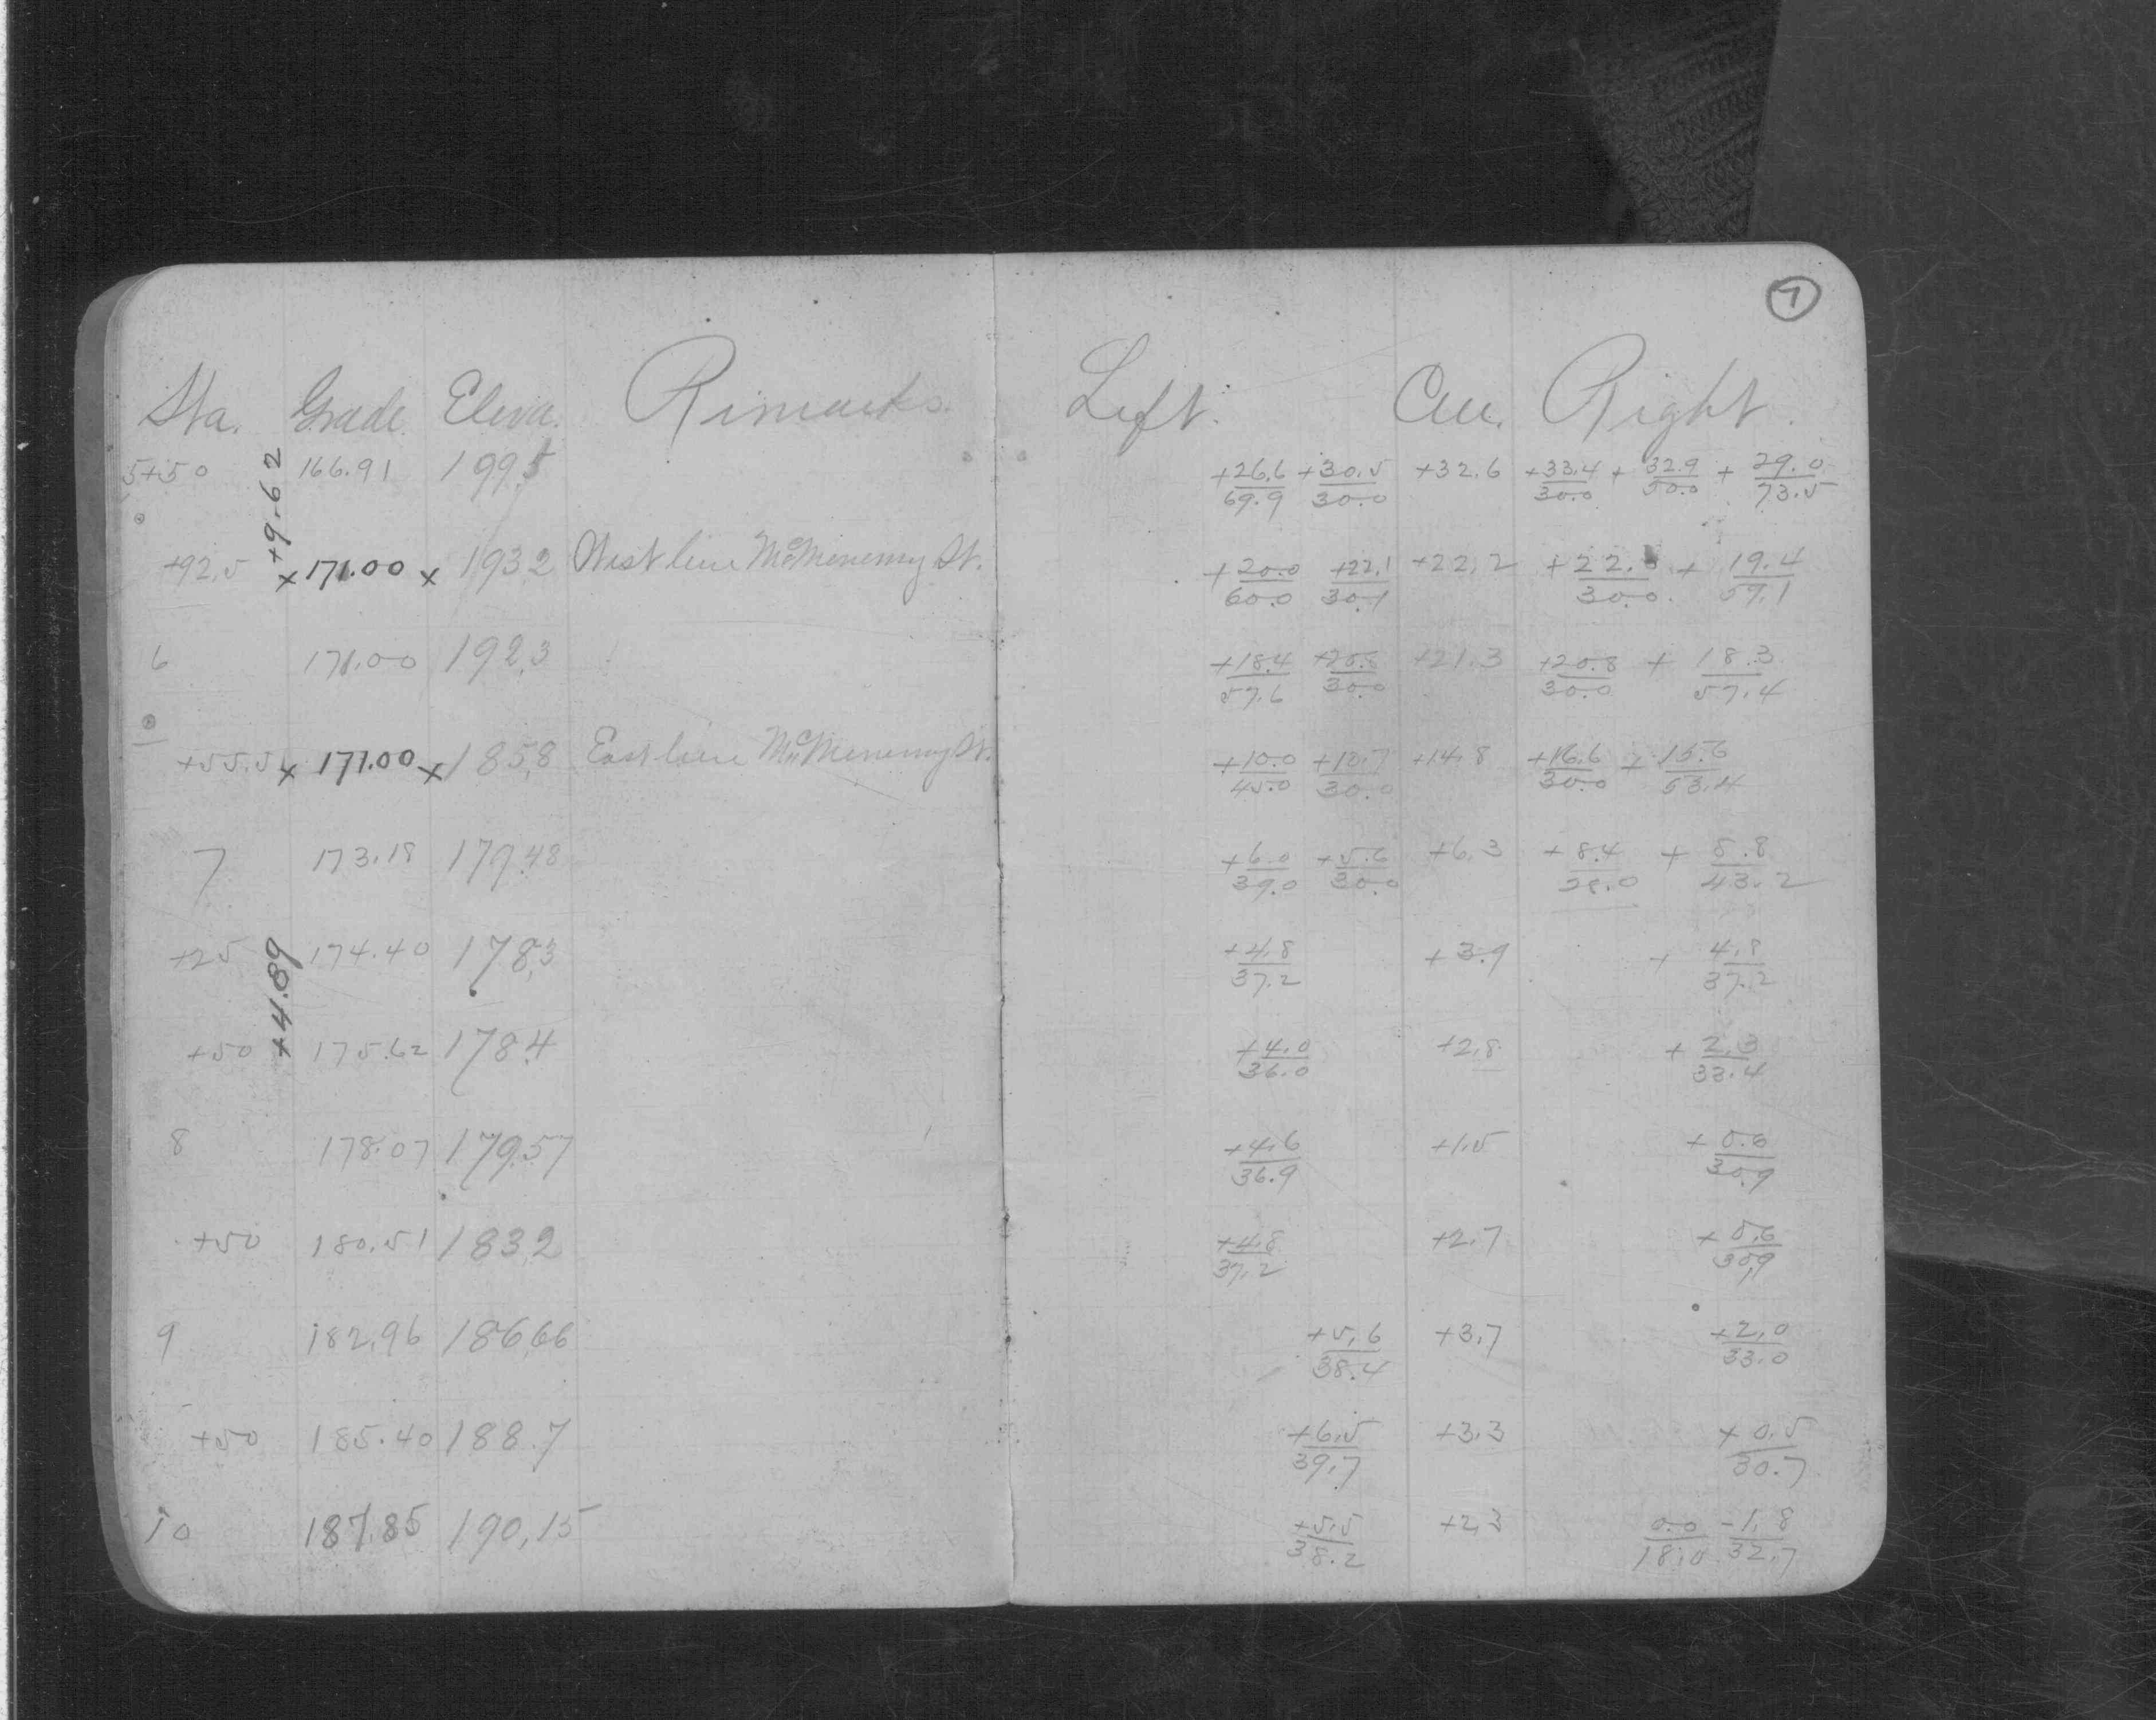 7
Sta. Grade. Eleva. Remarks. Left. Cen. Right.
5+50 166.91 199.5 +26.6/69.9 +30.5/30.0 +32.6 +33.4/30.0 + 32.9/50.0 + 29.0/73.5
+9.62
+92.5 x 171.00 x 193.2 West line McMenemy St. + 20.0/60.0 +22.1/30.1 +22.2 + 22. /30.0. + 19.4/59.1
6 171.00 192.3 +18.4/57.6 +20.8/30.0 +21.3 +20.8/30.0 + 18.3/57.4
+55.5 x 171.00 x 185.8 East line McMenemy St. +10.0/45.0 +10.7/30.0 +14.8 +16.6/30.0 + 15.6/53.4
7 173.18 179.48 +6.0/39.0 +5.6/30.0 +6.3 +8.4/ + 8.8/43.2
+25 174.40 178.3 +4.8/37.2 +3.9 + 4.8/37.2
+4.89
+50 175.62 178.4 +4.0/36.0 +2.8 + 2.3/33.4
8 178.07 179.57 +4.6/36.9 +1.5 + 0.6/30.9
+50 180.51 183.2 +4.8/37.2 +2.7 + 0.6/30.9
9 182.96 186.66 +5.6/38.4 +3.7 +2.0/33.0
+50 185.40 188.7 +6.5/39.7 +3.3 + 0.5/30.7
10 187.85 190.15 +5.5/38.2 +2.3 0.0/18.0 -1.8/32.7